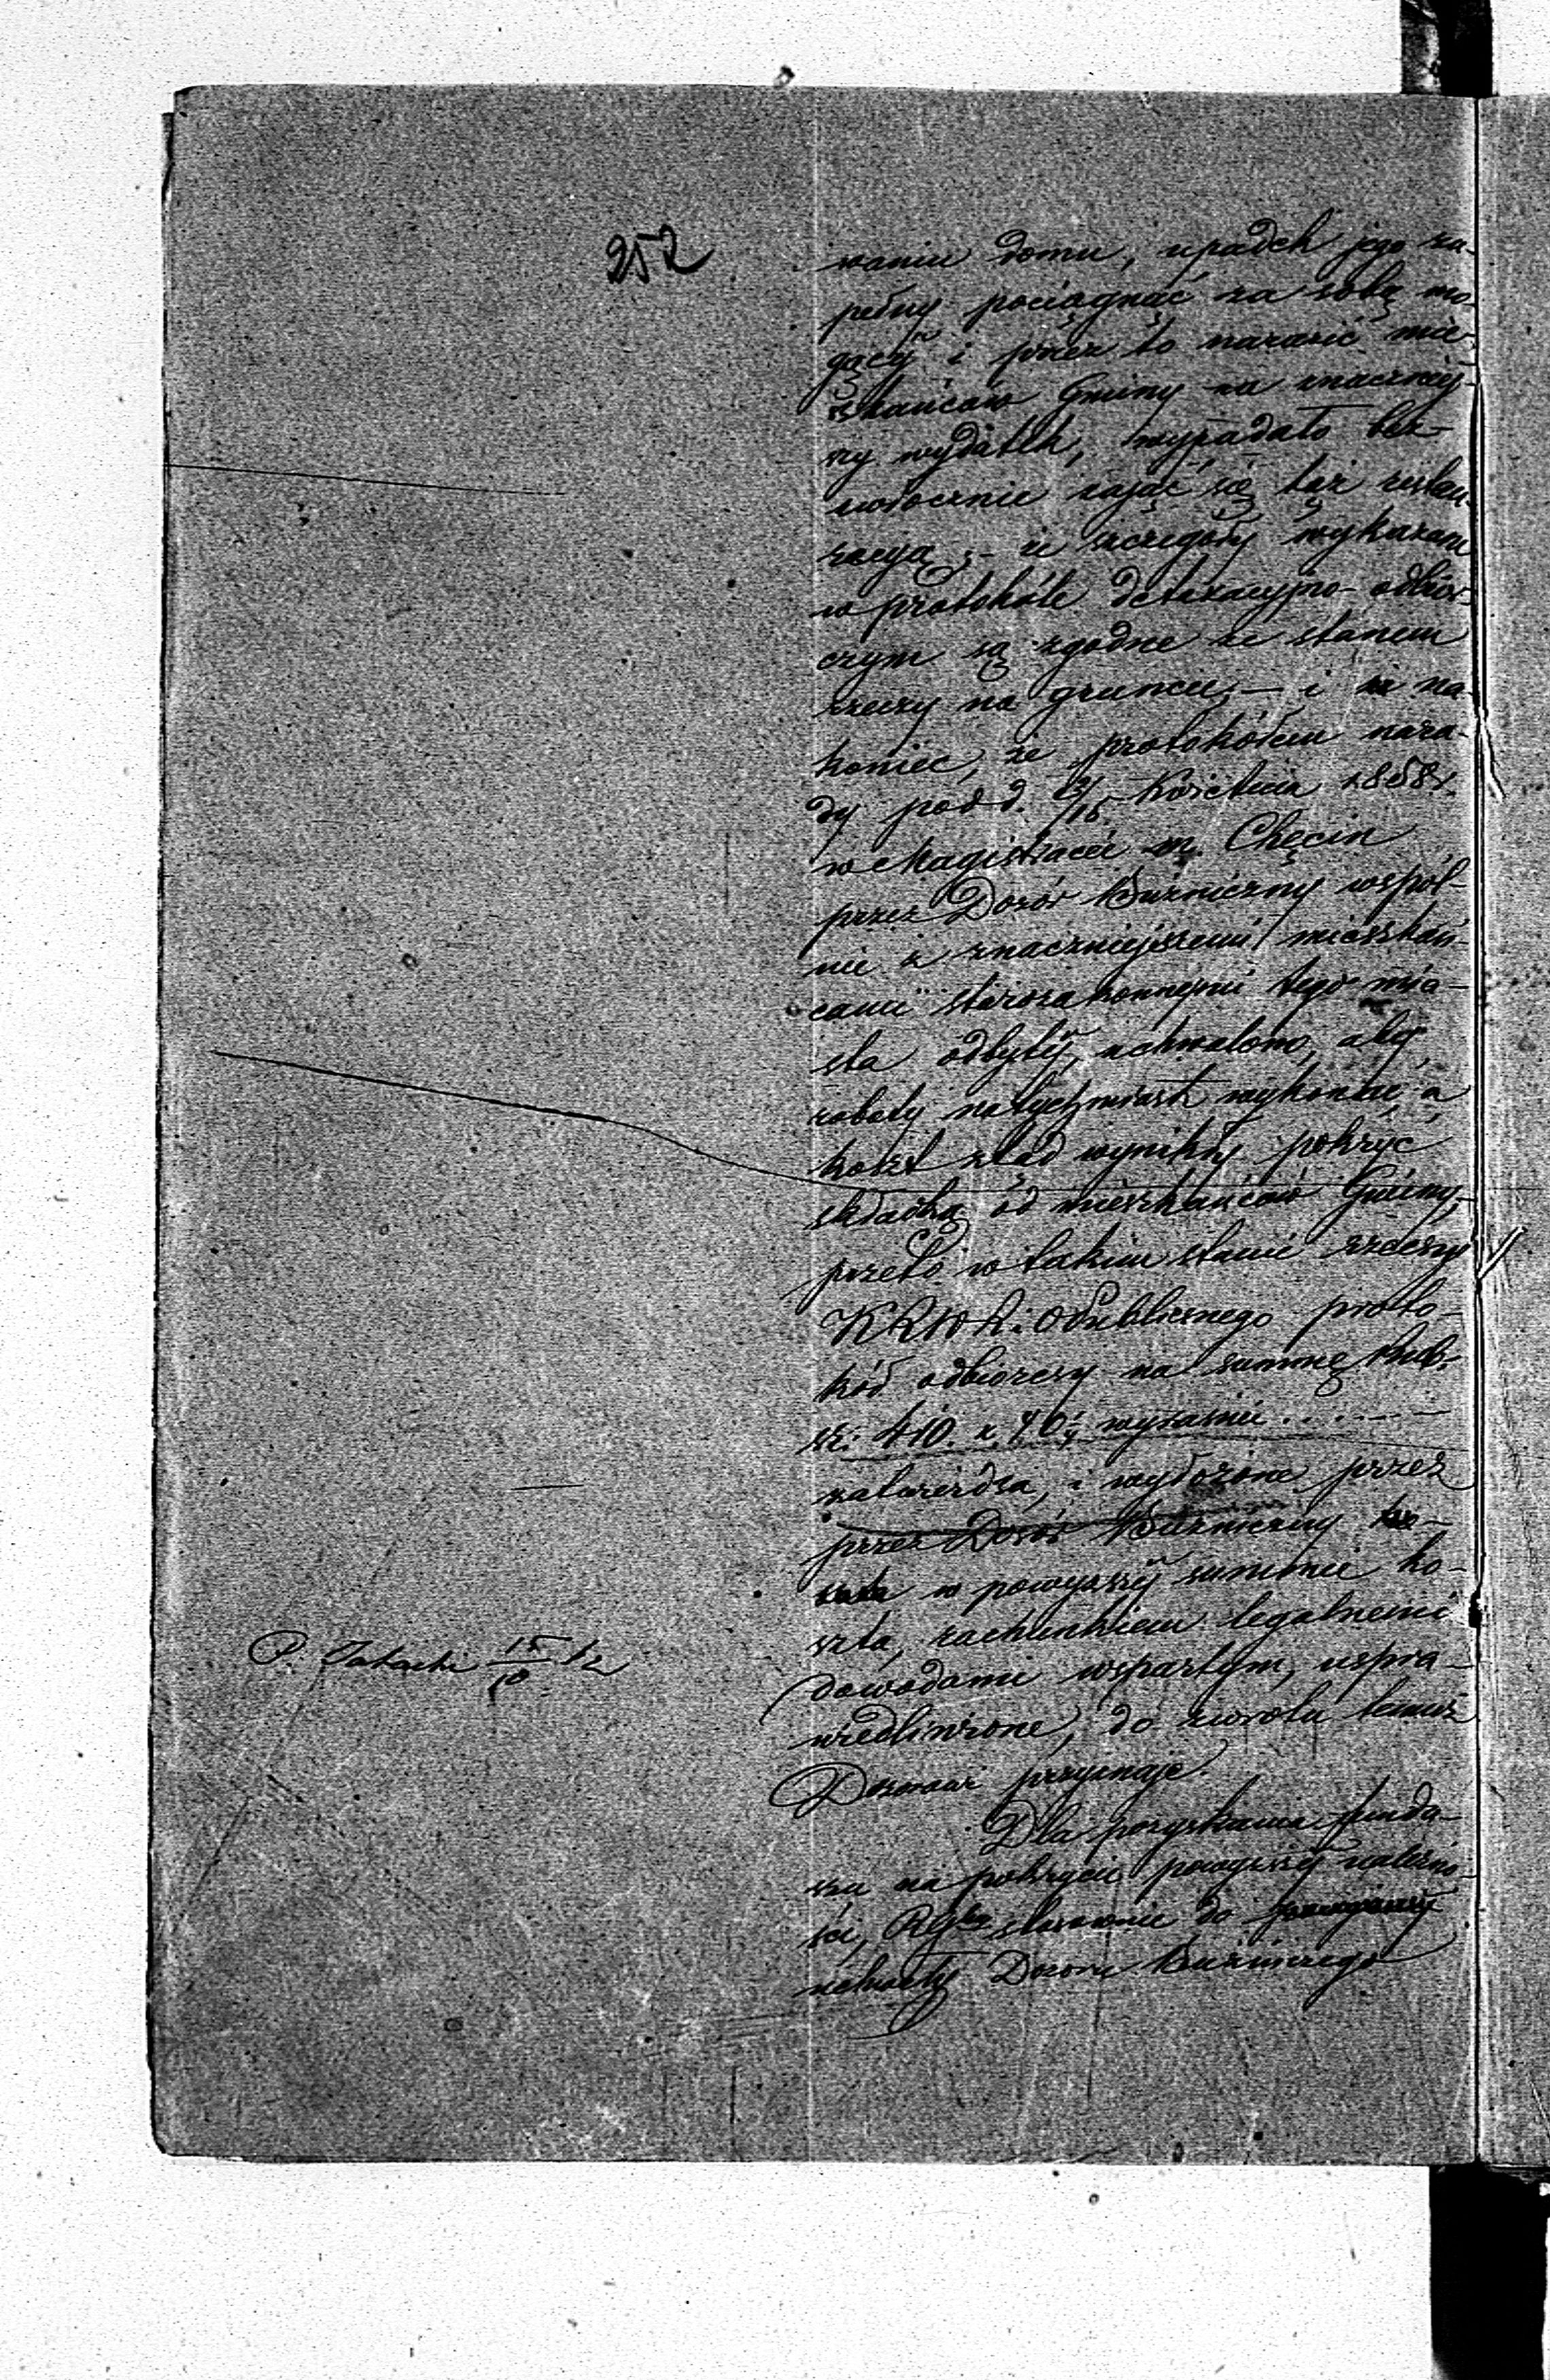 252
waniu domu, upadek jego zu-
pełny pociągnąć za sobą mo-
gący i przez to narazić mie-
szkańców Gminy na znaczniej-
szy wydatek, wypadało bez-
zwłocznie zająć się tąż restau-
racyą, – że szczegóły wykazane
w protokóle detaxacyjno-odbior-
czym są zgodne ze stanem
rzeczy na gruncie, – i na-
koniec, że protokółem nara-
dy pod d. 3/15 Kwietnia 1858 r.
w Magistracie m. Chęcin
przez Dozór Bużniczny wspól-
nie z znaczniejszemi mieszkań-
cami starozakonnymi tego mia-
sta odbytéj, uchwalono, aby
roboty natychmiast wykonać, a
koszt ztąd wynikły pokryć
składką od mieszkańców Gminy,
przeto w takim stanie rzeczy
Publicznego proto-
kół odbiorczy na summę Rub.
sr: 410 k. 40 wyraźnie . . . . . .
zatwierdza, i wyłożone przez
przez Dozór Bużniczny
w powyższéj summie ko-
szta, rachunkiem legalnemi
dowodami wspartym, uspra-
wiedliwione, do zwrotu temuż
Dozorowi przyznaje.
Dla pozyskania fundu-
szu na pokrycie powyższéj należno-
ści, stosownie do
uchwały Dozoru Bużniczego
P. 15/10